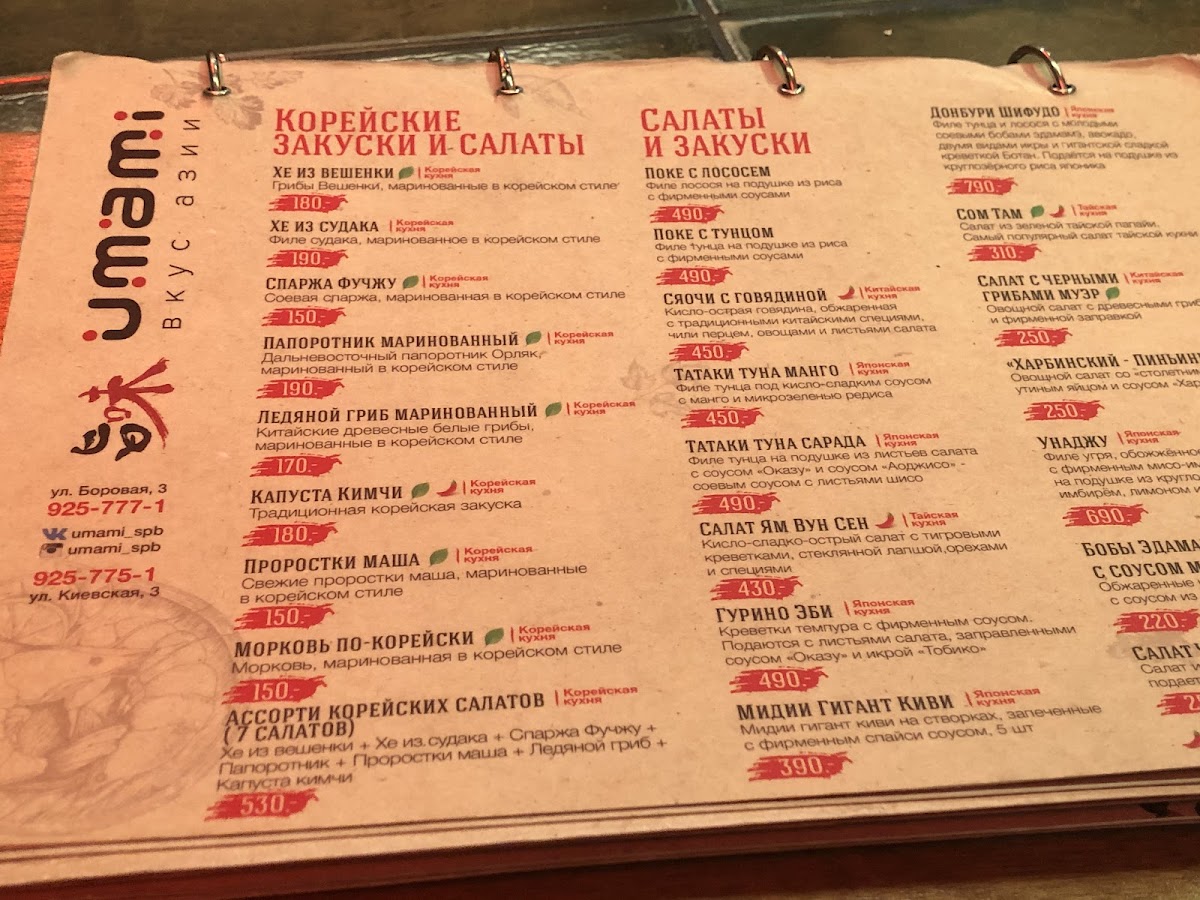 umami
вкус азии
ул. Боровая, 3
925-777-1
umami_spb
umami_spb
925-775-1
ул. Киевская, 3
Корейские
закуски и салаты
Хе из вешенки | Корейская кухня
Грибы Вешенки, маринованные в корейском стиле
180.-
Хе из судака | Корейская кухня
Филе судака, маринованное в корейском стиле
190.-
Спаржа Фучжу | Корейская кухня
Соевая спаржа, маринованная в корейском стиле
150.-
Папоротник маринованный | Корейская кухня
Дальневосточный папоротник Орляк,
маринованный в корейском стиле
190.-
Ледяной гриб маринованный | Корейская кухня
Китайские древесные белые грибы,
маринованные в корейском стиле
170.-
Капуста Кимчи | Корейская кухня
Традиционная корейская закуска
180.-
Проростки маша | Корейская кухня
Свежие проростки маша, маринованные
в корейском стиле
150.-
Морковь по-корейски | Корейская кухня
Морковь, маринованная в корейском стиле
150.-
Ассорти корейских салатов | Корейская кухня
(7 салатов)
Хе из вешенки + Хе из судака + Спаржа Фучжу +
Папоротник + Проростки маша + Ледяной гриб +
Капуста кимчи
530.-
Салаты
и закуски
Поке с лососем
Филе лосося на подушке из риса
с фирменными соусами
490.-
Поке с тунцом
Филе тунца на подушке из риса
с фирменными соусами
490.-
Сяочи с говядиной | Китайская кухня
Кисло-острая говядина, обжаренная
с традиционными китайскими специями,
чили перцем, овощами и листьями салата
450.-
Татаки туна манго | Японская кухня
Филе тунца под кисло-сладким соусом
с манго и микрозеленью редиса
450.-
Татаки туна сарада | Японская кухня
Филе тунца на подушке из листьев салата
с соусом «Оказу» и соусом «Аоджисо» -
соевым соусом с листьями шисо
490.-
Салат Ям Вун Сен | Тайская кухня
Кисло-сладко-острый салат с тигровыми
креветками, стеклянной лапшой,орехами
и специями
430.-
Гурино Эби | Японская кухня
Креветки темпура с фирменным соусом.
Подаются с листьями салата, заправленными
соусом «Оказу» и икрой «Тобико»
490.-
Мидии Гигант Киви | Японская кухня
Мидии гигант киви на створках, запеченные
с фирменным спайси соусом, 5 шт
390.-
Донбури Шифудо | Японская
Филе тунца и лосося с молодыми
соевыми бобами эдамамэ, авокадо,
двумя видами икры и гигантской сладкой
креветкой Ботан. Подаётся на подушке из
круглозёрного риса японика
790.-
Сом Там | Тайская кухня
Салат из зеленой тайской папайи.
Самый популярный салат тайской кухни
310.-
Салат с черными | Китайская кухня
грибами муэр
Овощной салат с древесными
и фирменной заправкой
250.-
«Харбинский -
Овощной салат со
утиным яйцом и соусом
250.-
Унаджу | Японская кухня
Филе угря,
с фирменным
на подушке из
имбирём, лимоном и
690.-
Бобы
с соусом
Обжаренные
с соусом из
220.-
Салат
Салат